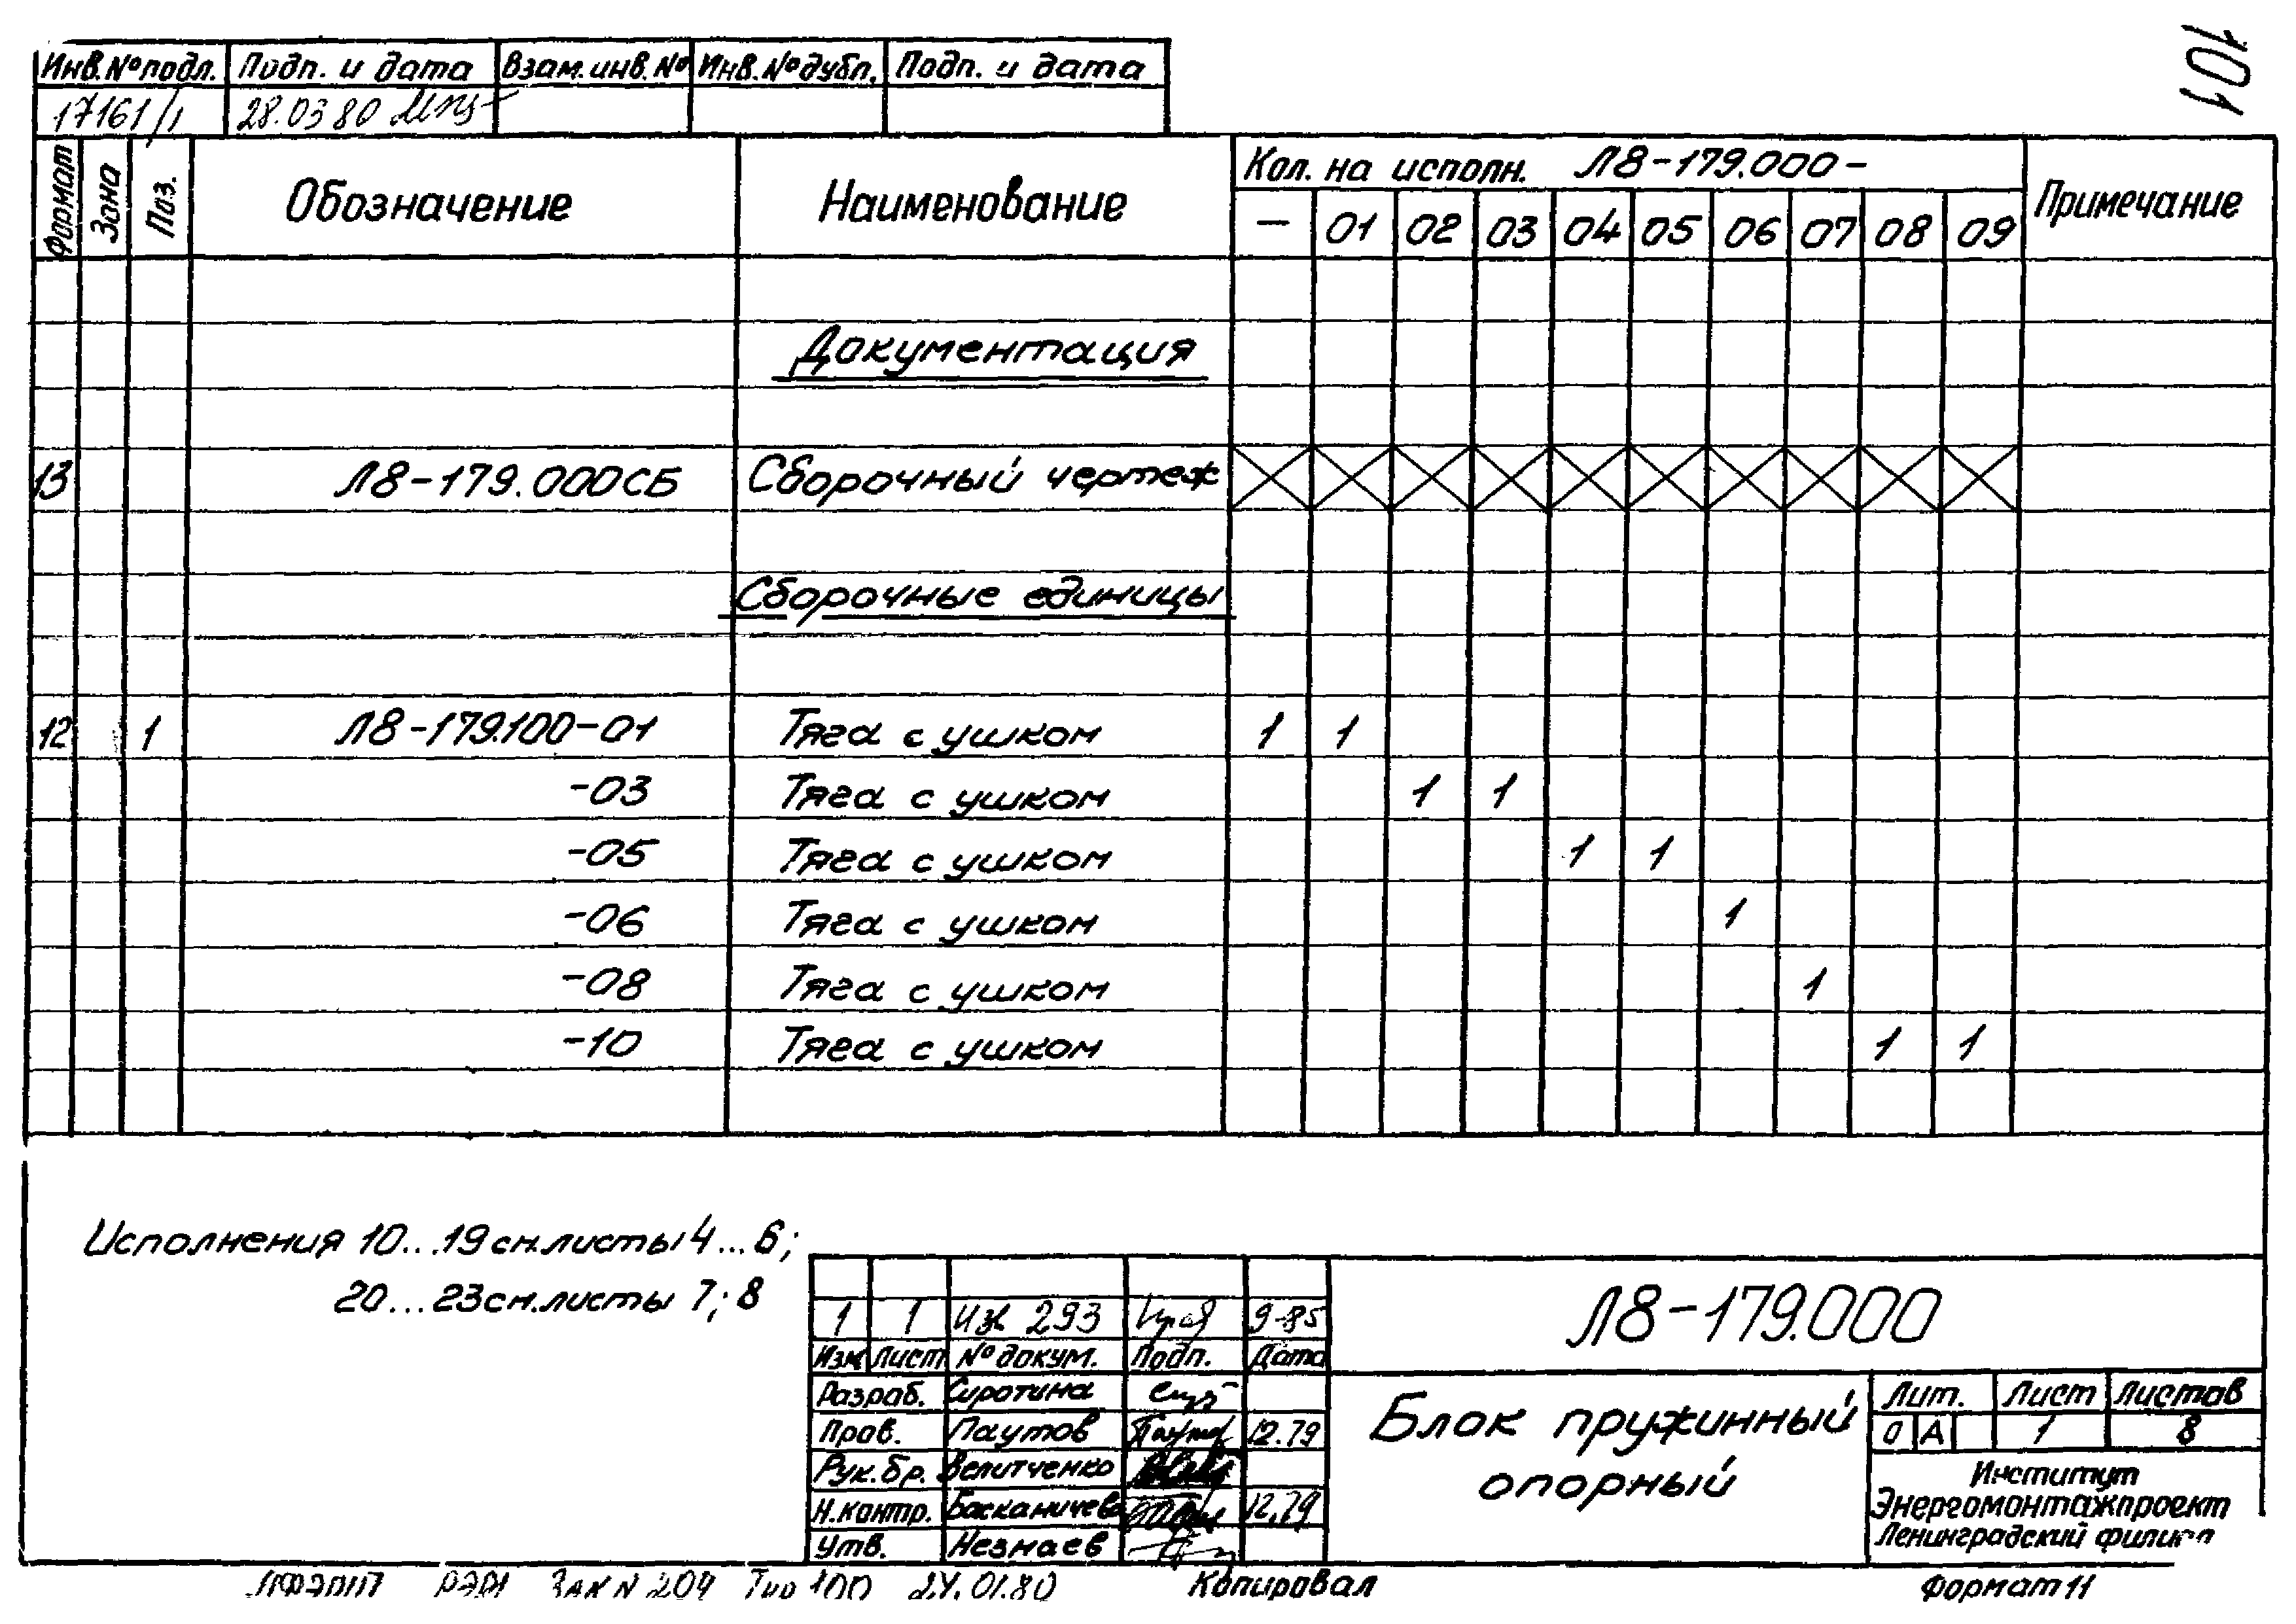 101
Инв.№подл. Подп. и дата Взам.инв.№ Инв.№дубл. Подп. и дата
17161/1 28.03 80
Формат Зона Поз. Обозначение Наименование Кол. на исполн. Л8-179.000- Примечание
— 01 02 03 04 05 06 07 08 09
Документация
13 Л8-179.000СБ Сборочный чертеж
Сборочные единицы
12 1 Л8-179.100-01 Тяга с ушком 1 1
-03 Тяга с ушком 1 1
-05 Тяга с ушком 1 1
-06 Тяга с ушком 1
-08 Тяга с ушком 1
-10 Тяга с ушком 1 1
Исполнения 10...19 см.листы 4...6;
20...23 см.листы 7; 8
1 1 Изв 293 9-85
Изм Лист № докум. Подп. Дата
Л8-179.000
Разраб. Сиротина
Пров. Паутов 12.79
Рук.бр. Велитченко
Н.контр. Басканичева 12.79
Утв. Незнаев
Блок пружинный
опорный
Лит. Лист Листов
О А 1 8
Институт
Энергомонтажпроект
Ленинградский филиал
Зак N 204 Тир 100 24.01.80 Копировал Формат 11